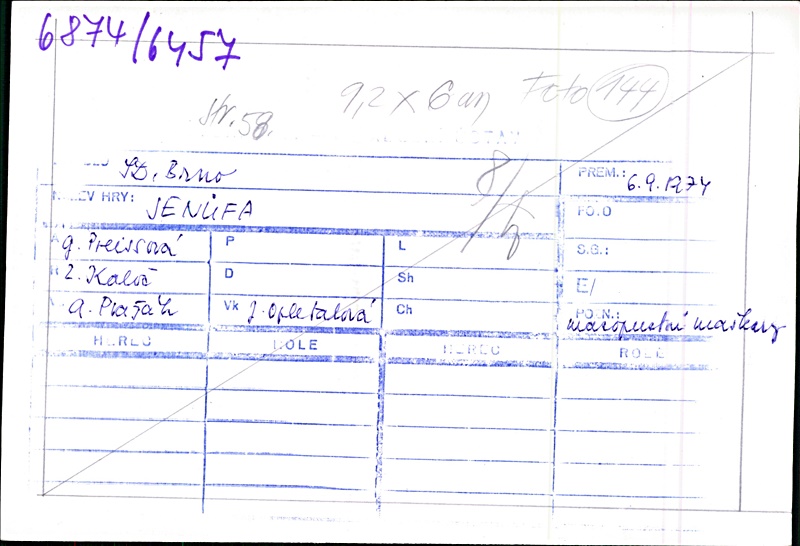 6874/6457
str. 58. 9,2 x 6 cm Foto 144
SD. Brno PREM.: 6.9.1974
HRY: JENŮFA FOTO
8/5
g. Preissová P L S.G.:
Z. Kaloč D Sh E/
a. Pražák Vk J. Opletalová Ch POZN.: masopustní maškary
HEREC ROLE HEREC ROLE